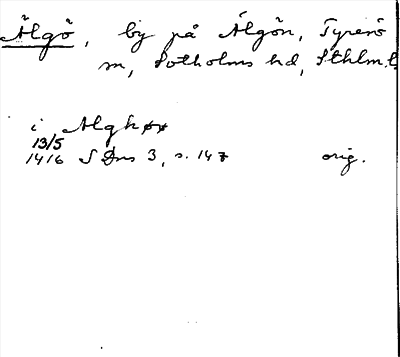 Älgö, by på Älgön, Tyresö
sn, Sotholms hd, Sthlms l.
i Alghø
13/5
1416 SDns 3, s. 147 orig.